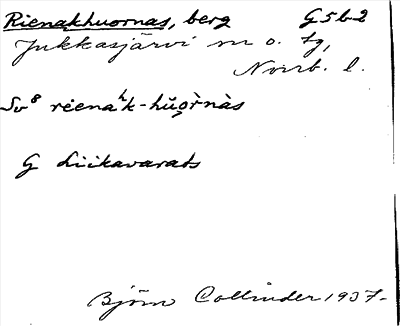 Rienakhuornas, berg G5b2
Jukkasjärvi sn o. tg,
Norrb. l.
Sv⁸ rı̄enaʰk-hŭo̧r̀nàs
G Liikavarats
Björn Collinder 1937-